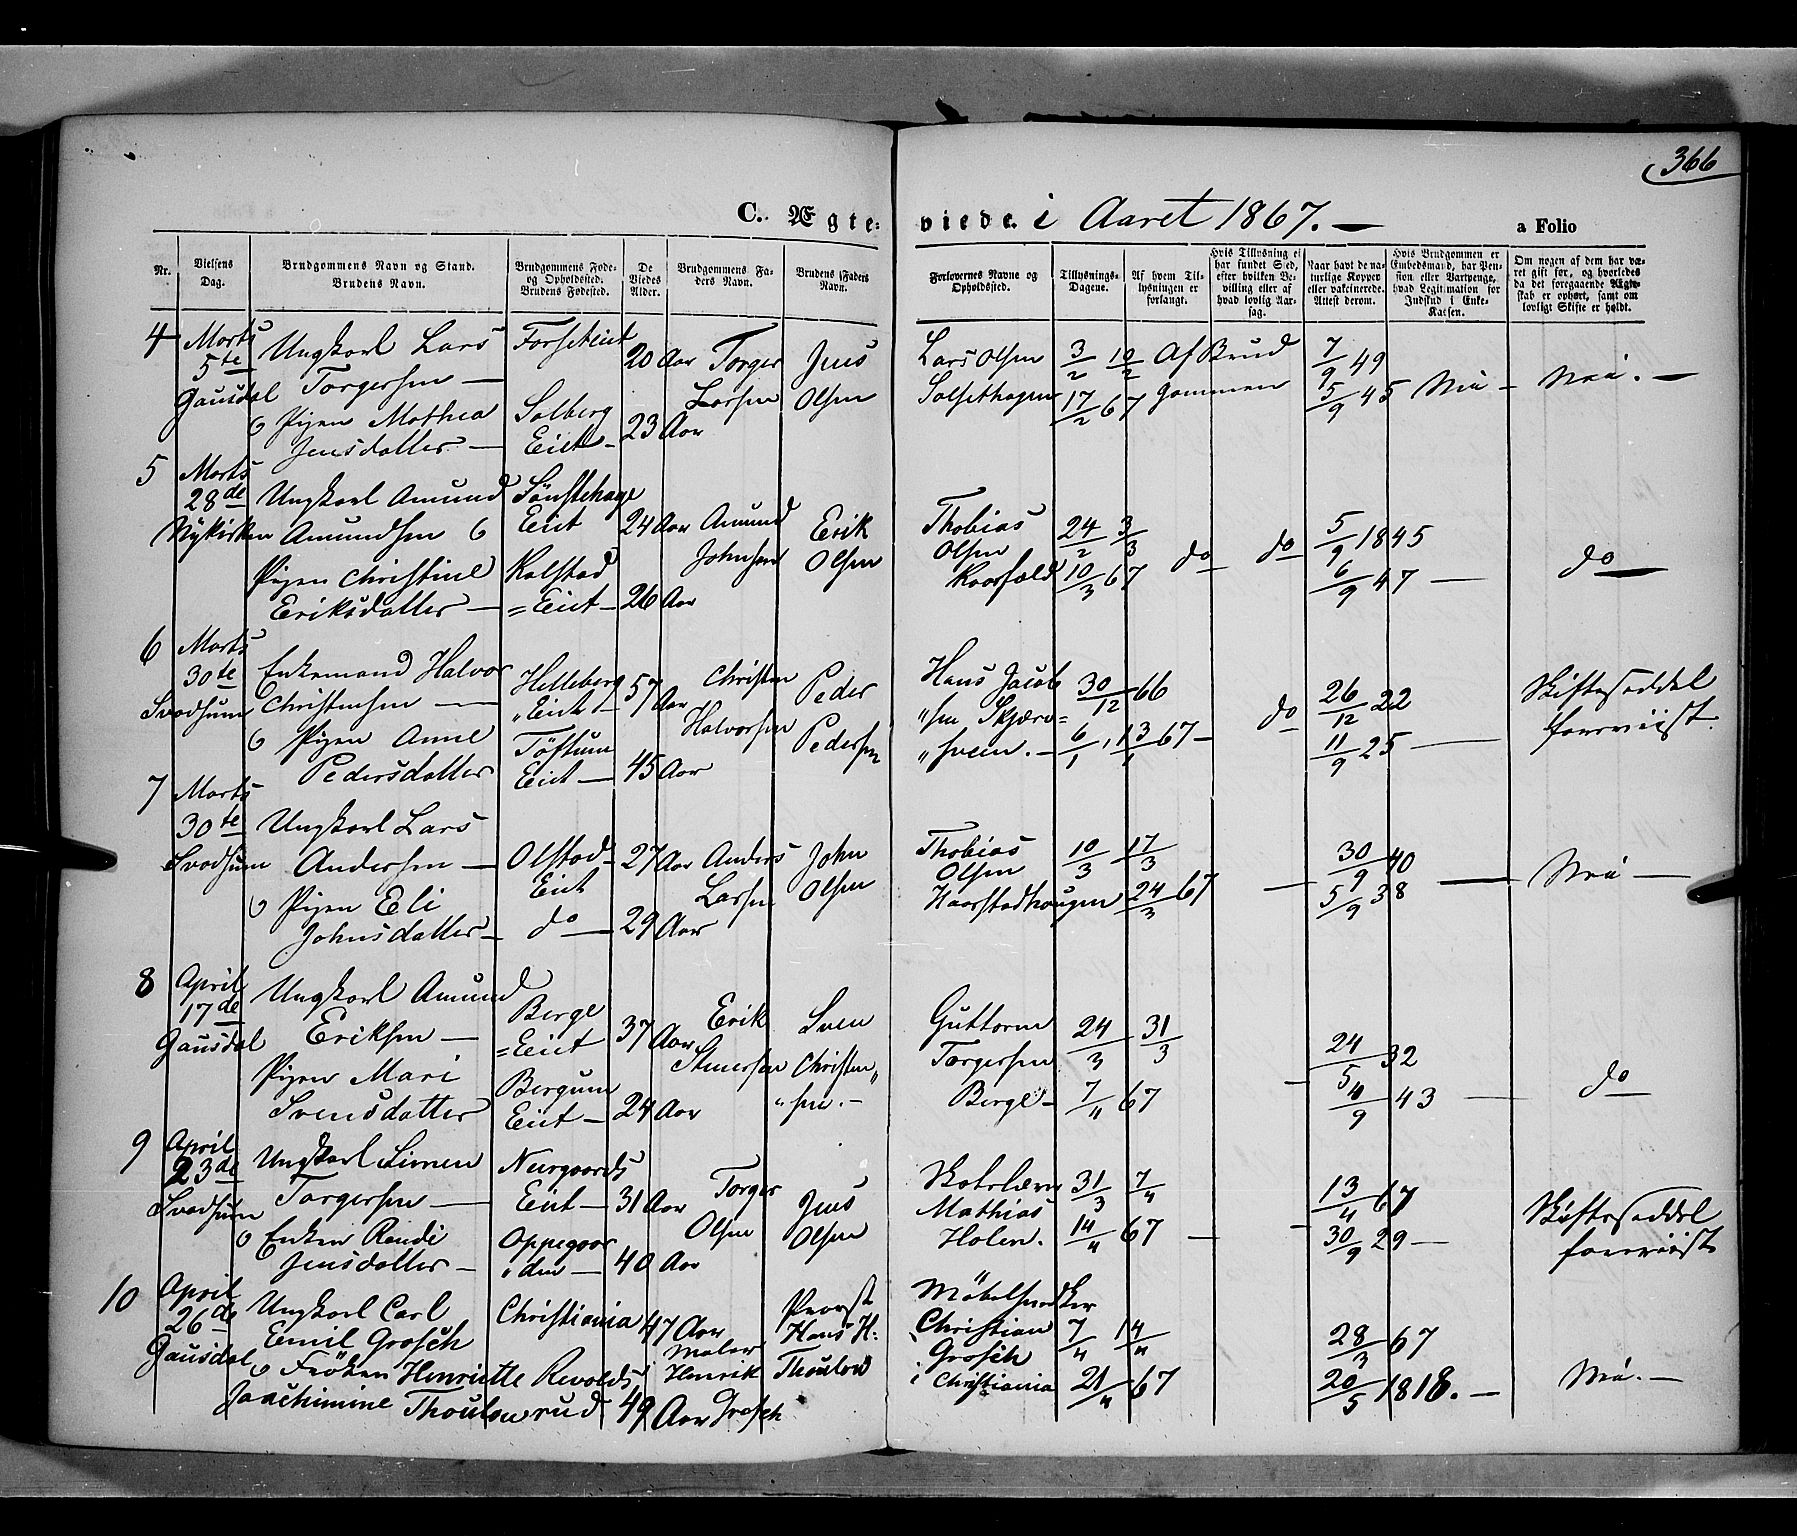 366
C. Ægteviede. i Aaret 1867. — a Folio
Nr.
Vielsens Dag.
Brudgommens Navn og Stand. Brudens Navn.
Brudgommens Føde- og Opholdssted. Brudens Fødested.
De Viedes Alder.
Brudgommens Faders Navn.
Brudens Faders Navn.
Forlovernes Navne og Opholdssted.
Tillysnings-Dagene.
Af hvem Tillysningen er forlangt.
Hvis Tillysning ei har fundet Sted, efter hvilken Bevilling eller af hvad lovlig Aarsag.
Naar havt de naturlige Kopper eller vakcinerede. Attest derom.
Hvis Brudgommen er Embedsmand, har Pension eller Vartpenge, hvad Legitimation for Indskud i Enke-Kassen.
Om nogen af dem har været gift før, og hvorledes da det foregaaende Ægteskab er ophørt, samt om lovligt Skifte er holdt.
4 Marts 5te Gausdal
Ungkarl Lars Torgersen —
o Pigen Mathea Jensdatter —
Solberg Eiet —
20 Aar
23 Aar
Torger Larsen
Jens Olsen
Lars Olsen
3/2 10/2 17/2 67
Af Brudgommen
7/9 49
5/9 45
Nei. —
5 Marts 28de Nykirken
Ungkarl Amund Amundsen o
Pigen Christine Eriksdatter —
Eiet
Kalstad =Eiet —
24 Aar
26 Aar
Amund Johnsen
Erik Olsen
Thobias Olsen
24/2 3/3 10/3 67
do do
5/9 1845
6/9 47 —
do —
6 Marts 30te Svadsum
Enkemand Halvor Christensen —
o Pigen Anne Pedersdatter
Helleberg "Eiet —
Töftum Eiet —
57 Aar
45 Aar
Christen Halvorsen
Peder Pedersen
Hans Jacob "sen Skjærv= "sveen. —
30/12 66
6/1, 13/1 67 —
do
26/12 22
11/9 25 —
Skifteseddel foreviist.
7 Marts 30te Svadsum
Ungkarl Lars Andersen —
o Pigen Eli Johnsdatter —
Olstad Eiet
do —
27 Aar
29 Aar
Anders Larsen
John Olsen
Thobias Olsen Haarstadhaugen
10/3 17/3 24/3 67
30/9 40
5/9 38
Nei —
8 April 17de Gausdal
Ungkarl Amund Eriksen —
Pigen Mari Svensdatter
Berge =Eiet
Bergum Eiet —
37 Aar
24 Aar
Erik Simensen
Sven Christen" "sen. —
Guttorm Torgersen Berge —
24/3 31/3 7/4 67
24/5 32
4/9 43 —
do —
9 April 23de Svadsum
Ungkarl Simen Torgersen —
o Enken Randi Jensdatter —
Eiet —
Oppegaar "den —
31 Aar
40 Aar
Torger Olsen
Jens Olsen
Mathias Holen.
31/3 7/4 14/4 67 —
13/4 67
30/9 29 —
Skifteseddel foreviist
10 April 26de Gausdal
Ungkarl Carl Emil Grosch
o Fröken Henriette Joachimine Thoulow
Christiania
Revoldsrud
47 Aar
49 Aar
Maler Henrik Grosch
Provst Hans H: Thoulow
Möbelsnedker Christian Grosch i Christiania
7/4 14/4 21/4 67
28/3 67
20/5 1818. —
Nei. —